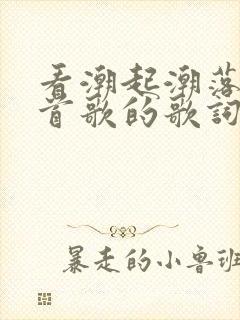 看潮起潮落
首歌的歌詞
暴走的小魯班